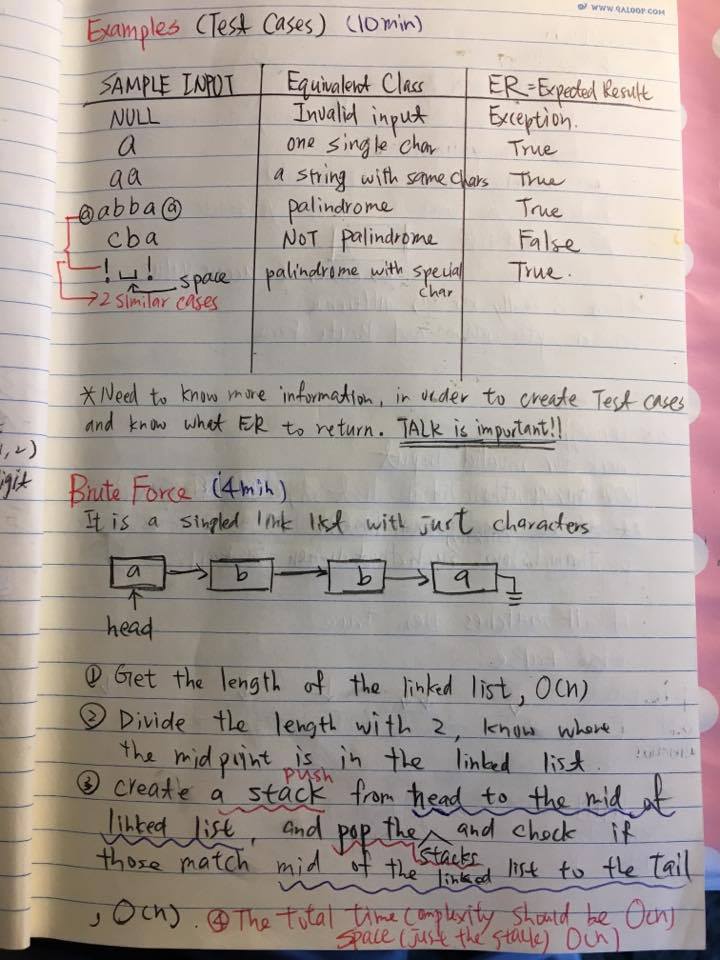 WWW.QALOOP.COM
Examples (Test Cases) (10min)
SAMPLE INPUT Equivalent Class ER=Expected Result
NULL Invalid input Exception.
a one single char True
aa a string with same chars True
ⓐabbaⓐ palindrome True
cba NOT palindrome False
!␣! palindrome with special char True.
space
→2 similar cases
*Need to know more information, in order to create Test cases
and know what ER to return. TALK is important!!
1,2)
igit
Brute Force (4min)
It is a singled link list with just characters
a → b → b → a
head
① Get the length of the linked list, O(n)
② Divide the length with 2, know where
the midpoint is in the linked list.
③ create a stack push from head to the mid of
linked list, and pop the stacks and check if
those match mid of the linked list to the tail
, O(n). ④ The total time complexity should be O(n)
space (just the stack) O(n)